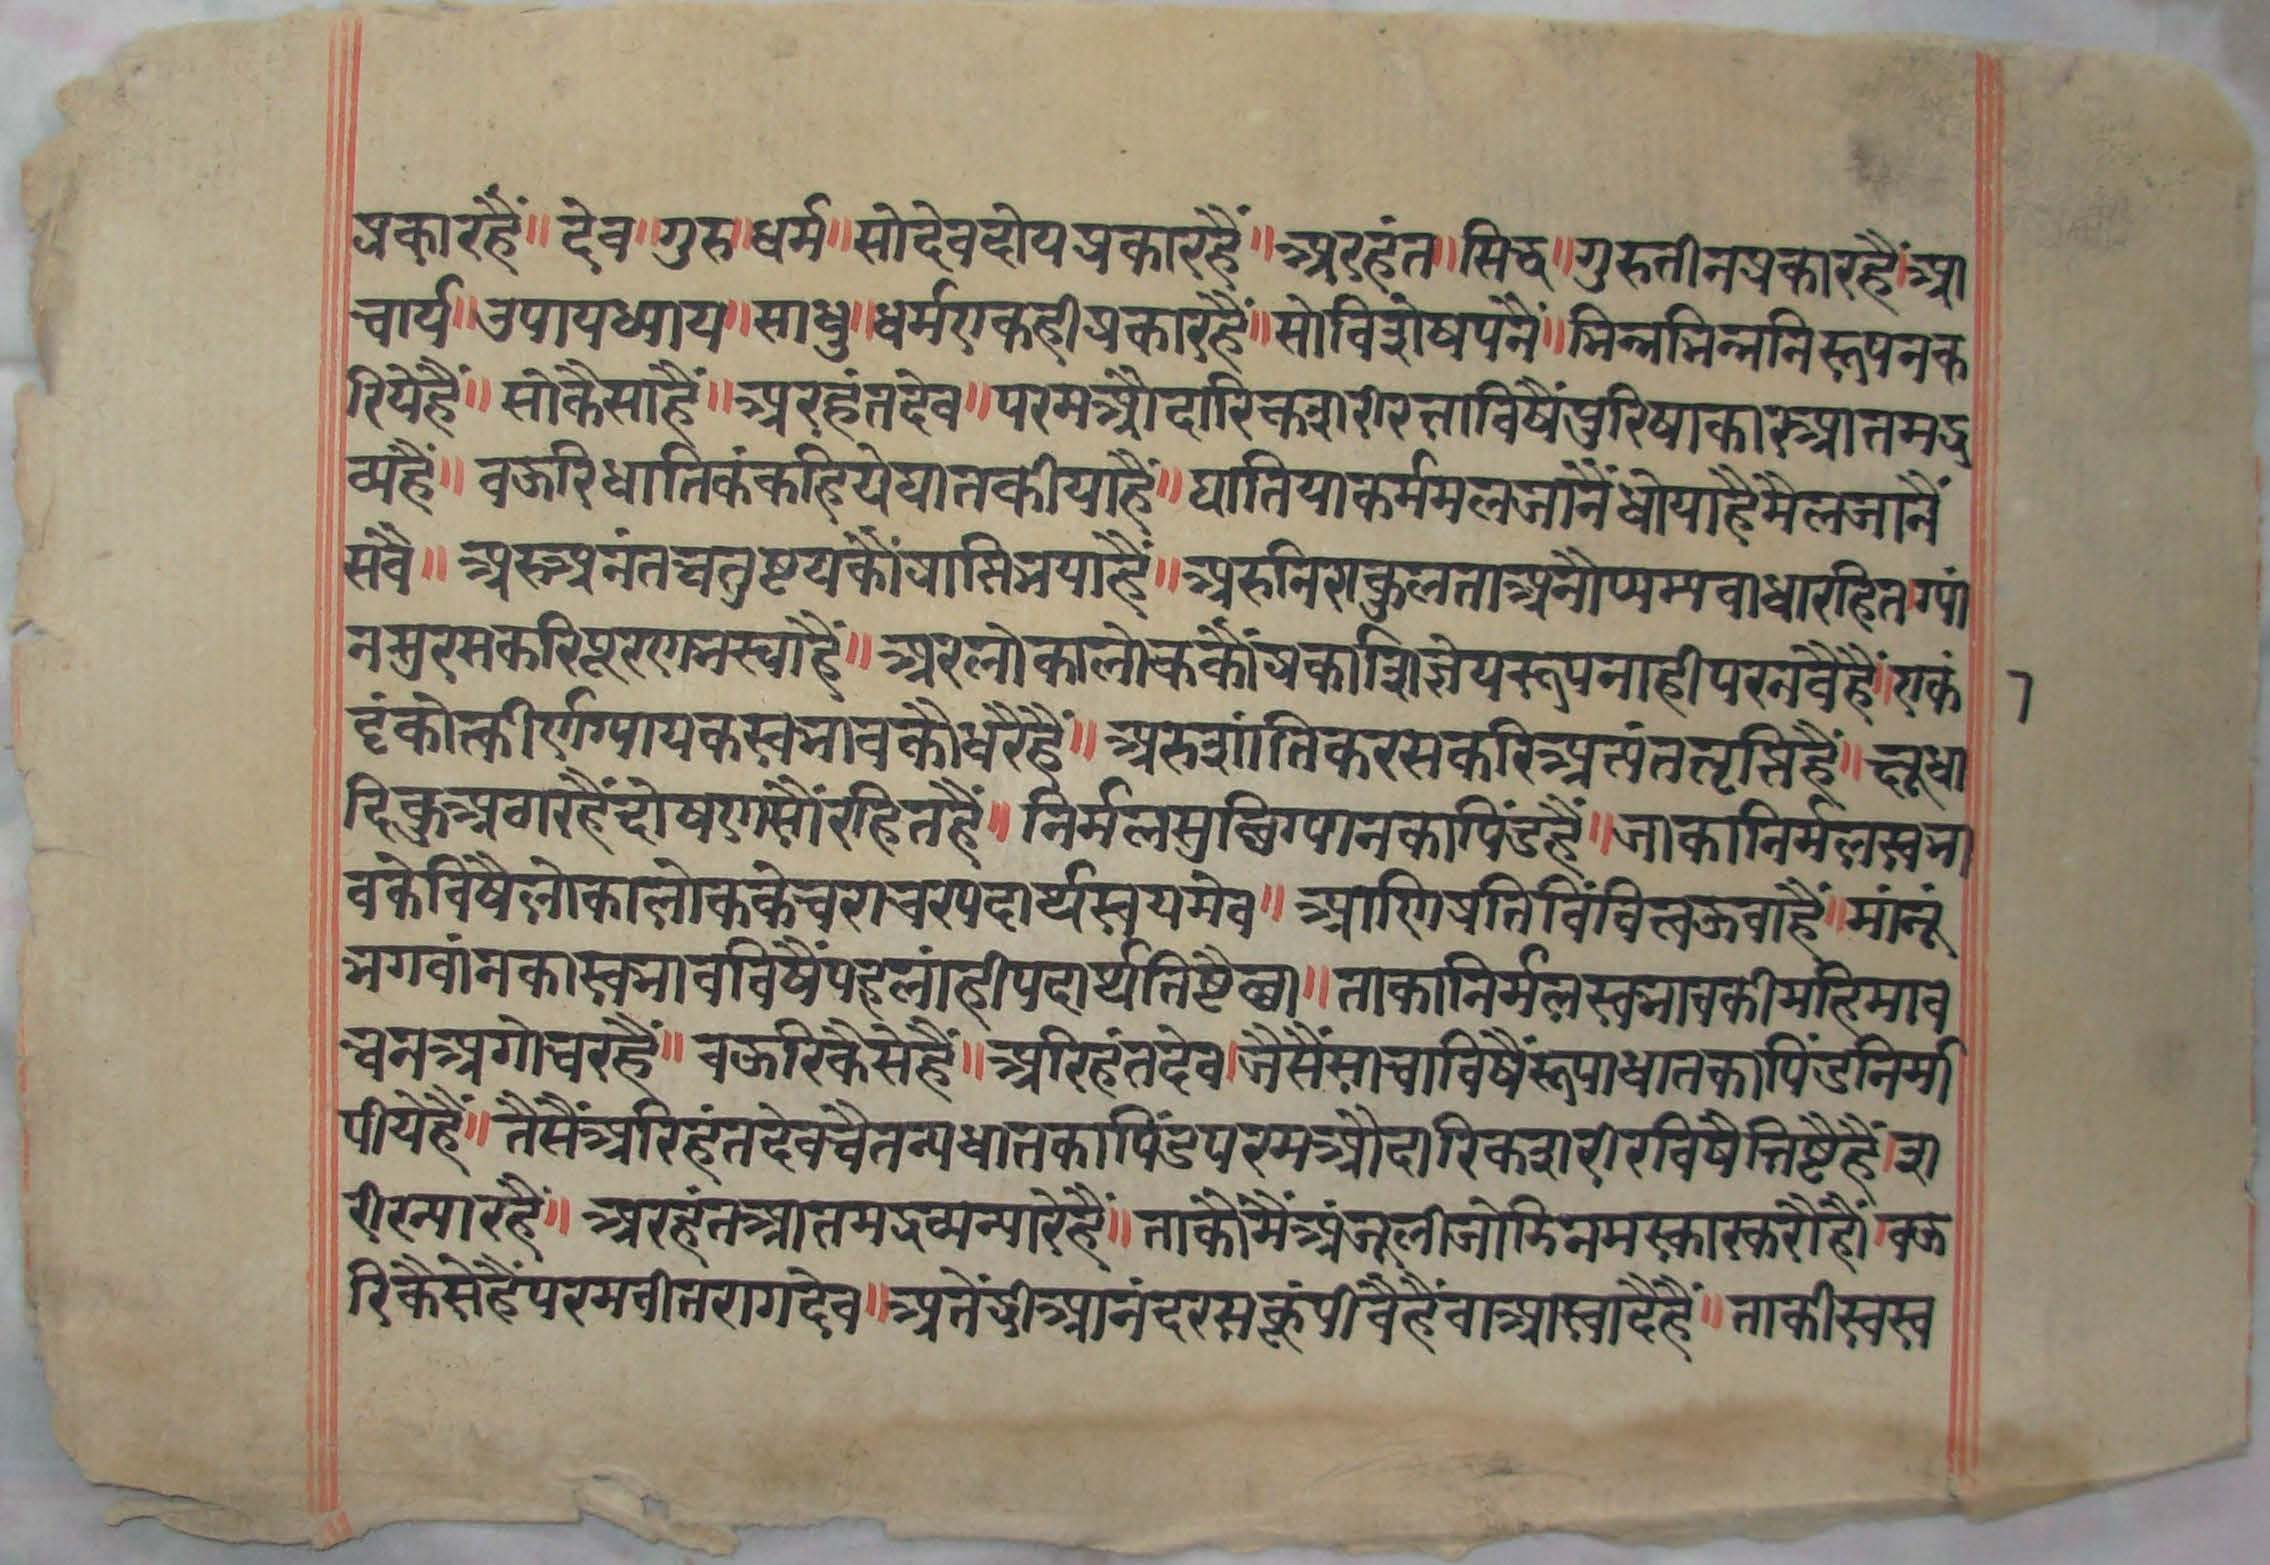 प्रकारहैं॥ देव॥गुरु॥धर्म॥सोदेवदोयप्रकारहैं॥अरहंत॥सिद्ध॥गुरुतीनप्रकारहैं।आ
चार्य॥उपायध्याय॥साधु॥धर्मएकहीप्रकारहैं॥सोविशेषपनैं॥भिन्नभिन्ननिरूपनक
रियेहैं॥ सोकैसाहैं॥अरहंतदेव॥परमऔदारिकशरीरताविषैंपुरिषाकारआतमद्र
व्यहैं॥ बऊरिघातिकंकहियेघातकीयाहैं॥घातियाकर्ममलजांनैंधोयाहैमैलजानैं
सवै॥ अरुअनंतचतुष्टयकौंप्राप्तिभयाहैं॥अरुनिराकुलताअनौप्यमवाधारहितग्यां
नसुरसकरिपूरणभस्याहैं॥ अरलोकालोककौंप्रकाशिज्ञेयरूपनाहीपरनवैहैं।एकं
टंकोत्कीर्णग्यायकस्वभावकौधरैहैं॥ अरुशांतिकरसकरिअत्यंततृप्तिहैं॥क्षूधा
दिकुअठारहैंदोषणसौंरहितहैं॥ निर्मलसुछिग्यानकापिंडहैं॥जाकानिर्मलस्वभा
वकेविषैलोकालोककेचराचरपदार्थस्वयमेव॥ आणिप्रतिविंवित्वऊवाहैं॥मांनूं
भगवांनकास्वभावविषैंपहलांहीपदार्थतिष्टैव्था॥ताकानिर्मलस्वभावकीमहिमाव
चनअगोचरहैं॥ वऊरिकैसेहैं॥अरिहंतदेव।जैसैंसाचाविषैंरूपाधातकापिंडनिर्मा
पीयेहैं॥ तैसैंअरिहंतदेवचैतन्यधातकापिंडपरमऔदारिकशरीरविषैत्तिष्टैहैं।श
रीरन्यारहैं॥ अरहंतआतमद्रव्यन्यारेहैं॥ताकौमैंअंजूलीजोडिनमस्कारकरौहौं।वऊ
रिकैसेहैंपरमवीतरागदेव॥अतेंद्रीआनंदरसकूंपीवैंहैंवाआस्वादैहैं॥ताकीस्वस्व